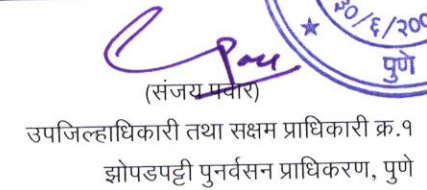 ३०/६/२००
पुणे
(संजय पवार)
उपजिल्हाधिकारी तथा सक्षम प्राधिकारी क्र.१
झोपडपट्टी पुनर्वसन प्राधिकरण, पुणे